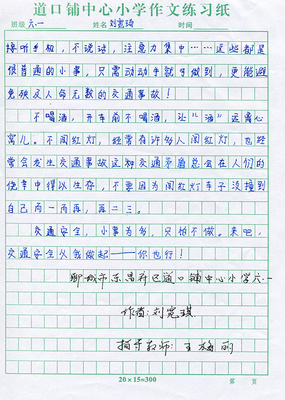 道口铺中心小学作文练习纸
班级 六.一 姓名 刘宪琦 时间
接听手机，不说话，注意力集中……这些都是
很普通的小事，只需动动手就可做到，更能避
免殃及人命无数的交通事故！
不喝酒，开车前不喝酒，让“酒”远离心
窝儿。不闯红灯，经常有许多人闯红灯，也经
常会发生交通事故这种交通矛盾总会在人们的
侥幸中得以生存，不要因为闯红灯车子没撞到
自己而一而再，再二三。
交通安全，小事为多，只怕不做。来吧，
交通安全从我做起——你也行！
聊城市东昌府区道口铺中心小学六.一
作者：刘宪琪
指导教师：王梅丽
20×15=300
第 页